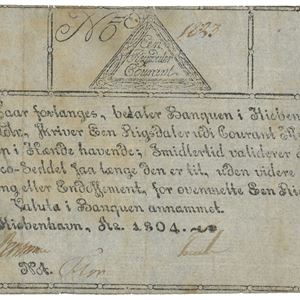 No
1823
Een
Rigsdaler
Courant
naar forlanges, betaler Banquen i Kioben
skriver Een Rigsdaler udi Courant
i Hænde havende; Imidlertid validerer
co-Seddel saa længe den er til, uden videre
ng eller Endossement, for ovenmelte Een Ri
Valuta i Banquen annammet.
Kiobenhavn, Ao. 1804.
Not.